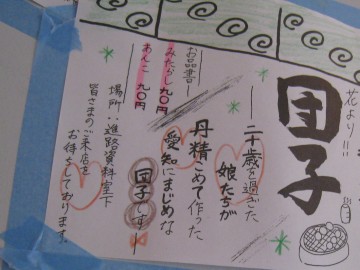 花より!!!
団子
二十歳を過ぎた
娘たちが
丹精こめて作った
愛知にまじめな
団子です
お品書
みたらし 九〇円
あんこ 九〇円
場所:進路資料室下
皆さまのご来店を
お待ちしております。